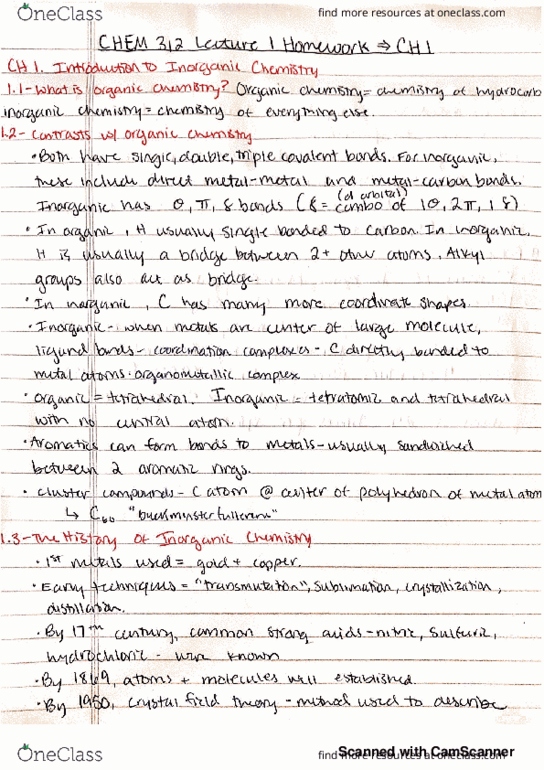 OneClass
find more resources at oneclass.com
CHEM 312 Lecture 1 Homework ⇒ CH 1
CH 1. Introduction to Inorganic Chemistry
1.1 - What is organic chemistry? Organic chemistry = chemistry of hydrocarb
inorganic chemistry = chemistry of everything else.
1.2 - Contrasts w/ organic chemistry
• Both have single, double, triple covalent bonds. For inorganic,
these include direct metal-metal and metal-carbon bonds.
(d orbital)
Inorganic has σ, π, δ bonds (δ = combo of 1σ, 2π, 1 δ)
• In organic, H usually single bonded to carbon. In inorganic,
H is usually a bridge between 2+ other atoms. Alkyl
groups also act as bridge.
• In inorganic, C has many more coordinate shapes
• Inorganic - when metals are center of large molecule,
ligand bonds - coordination complexes - C directly bonded to
metal atoms - organometallic complex
• Organic = tetrahedral. Inorganic = tetratomic and tetrahedral
with no central atom.
• Aromatics can form bonds to metals - usually sandwiched
between 2 aromatic rings.
• Cluster compounds - C atom @ center of polyhedron of metal atom
↳ C60 "buckminsterfullerene"
1.3 - The History of Inorganic Chemistry
• 1st metals used = gold + copper.
• Early techniques = "transmutation", sublimation, crystallization,
distillation.
• By 17th century, common strong acids - nitric, sulfuric,
hydrochloric - were known
• By 1869, atoms + molecules well established.
• By 1950, crystal field theory - method used to describe
OneClass
find more resources at oneclass.com
Scanned with CamScanner